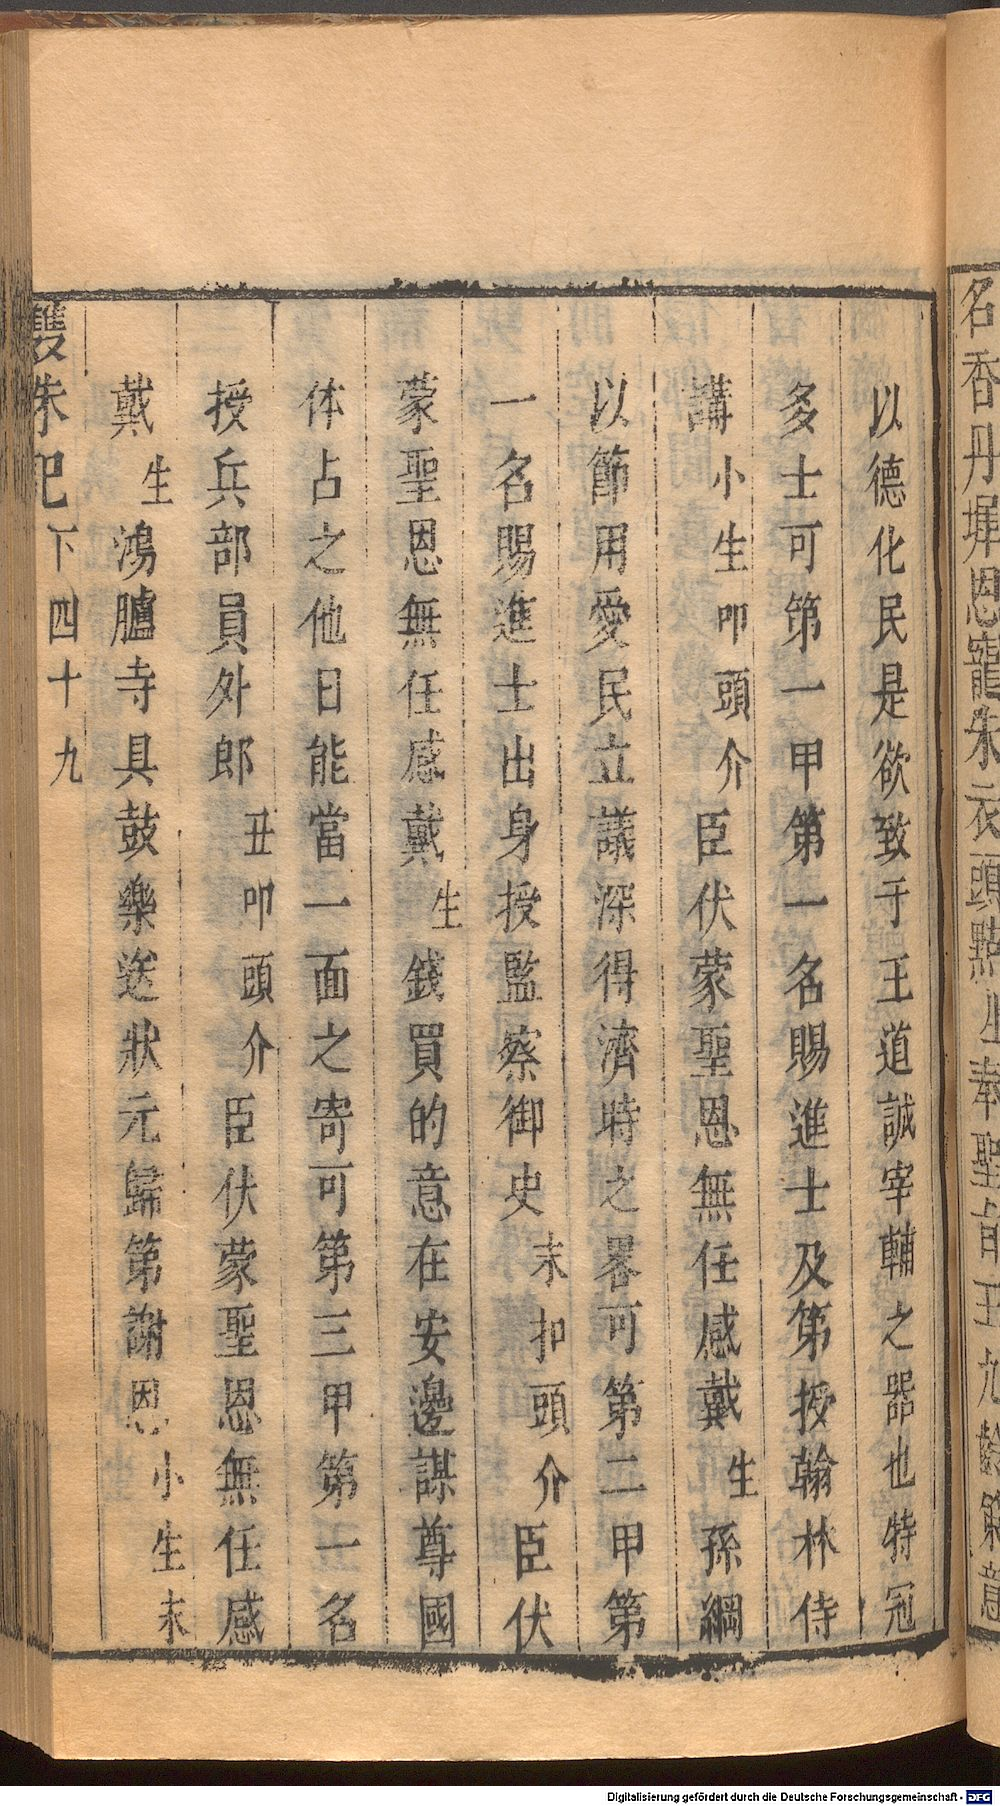 名香丹墀恩寵朱衣頭點生奉聖旨王九齡策意
以德化民是欲致于王道誠宰輔之器也特冠
多士可第一甲第一名賜進士及第授翰林侍
講小生叩頭介臣伏蒙聖恩無任感戴生孫綱
以節用愛民立議深得濟時之畧可第二甲第
一名賜進士出身授監察御史末扣頭介臣伏
蒙聖恩無任感戴生錢買的意在安邊謀尊國
体占之他日能當一面之寄可第三甲第一名
授兵部員外郎丑叩頭介臣伏蒙聖恩無任感
戴生鴻臚寺具鼓樂送狀元歸第謝恩小生末
雙珠記下四十九
Digitalisierung gefördert durch die Deutsche Forschungsgemeinschaft - DFG